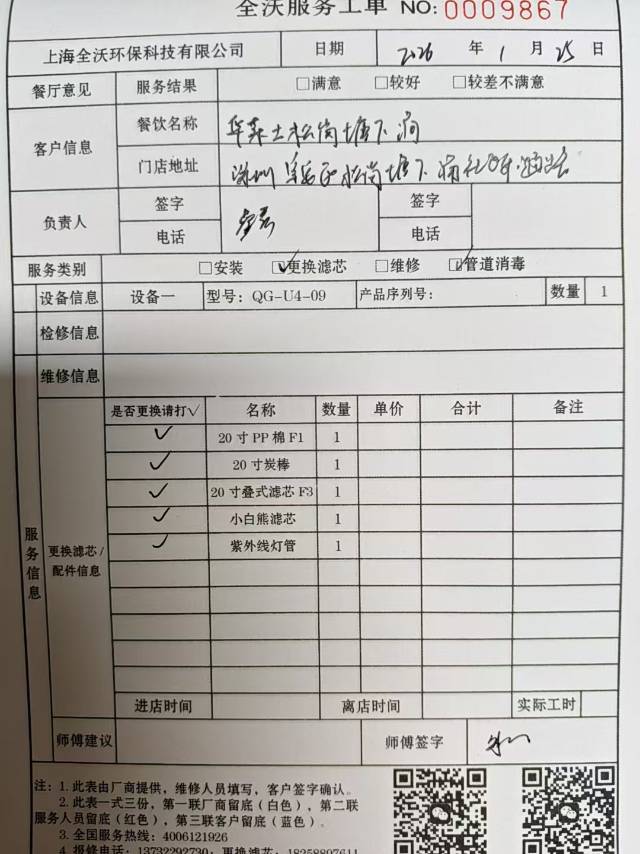 全沃服务工单 NO:0009867
上海全沃环保科技有限公司 日期 2026 年 1 月 25 日
餐厅意见 服务结果 □满意 □较好 □较差不满意
客户信息 餐饮名称 华莱士松岗塘下涌
门店地址 深圳 松岗塘下涌
负责人 签字 签字
电话 电话
服务类别 □安装 ☑更换滤芯 □维修 ☑管道消毒
设备信息 设备一 型号: QG-U4-09 产品序列号: 数量 1
检修信息
维修信息
服务信息
更换滤芯/配件信息
是否更换请打√ 名称 数量 单价 合计 备注
✓ 20寸PP棉F1 1
✓ 20寸炭棒 1
✓ 20寸叠式滤芯F3 1
✓ 小白熊滤芯 1
✓ 紫外线灯管 1
进店时间 离店时间 实际工时
师傅建议 师傅签字
注: 1.此表由厂商提供，维修人员填写，客户签字确认。
2.此表一式三份，第一联厂商留底(白色)，第二联
服务人员留底(红色)，第三联客户留底(蓝色)。
3.全国服务热线: 4006121926
4.报修电话: 13732292730; 更换滤芯: 18258897611